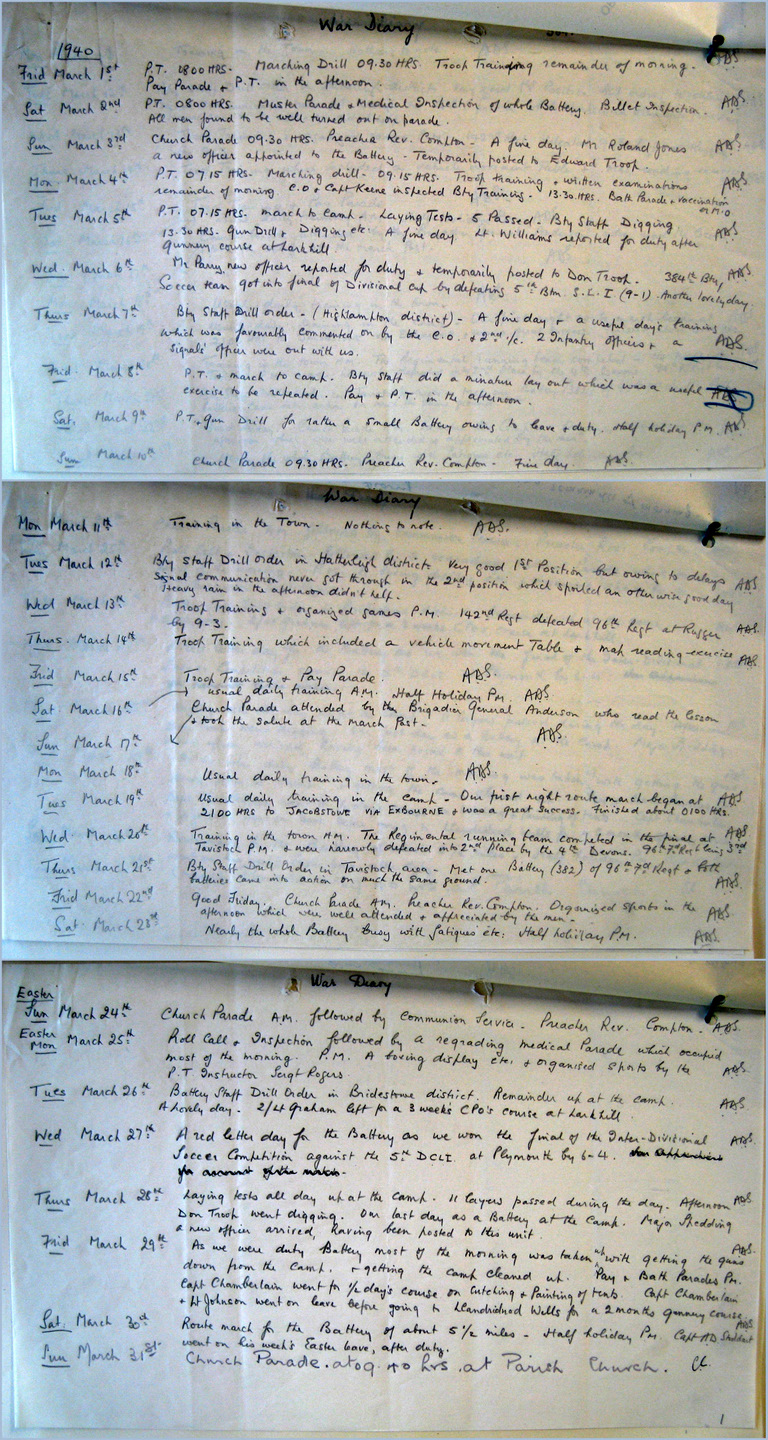 War Diary
1940
Frid March 1st P.T. 0800 HRS. Marching Drill 09.30 HRS. Troop Training remainder of morning. ADS
Pay Parade & P.T. in the afternoon.
Sat March 2nd PT. 0800 HRS. Muster Parade & Medical Inspection of whole Battery. Billet Inspection. ADS.
All men found to be well turned out on parade.
Sun March 3rd Church Parade 09.30 HRS. Preacher Rev. Compton - A fine day. Mr Roland Jones ADS.
a new officer appointed to the Battery - Temporarily posted to Edward Troop.
Mon. March 4th P.T. 07.15 HRS. Marching drill - 09.15 HRS. Troop training & written examinations ADS
remainder of morning C.O & Capt Keene inspected Bty Training - 13.30 HRS. Bath Parade & vaccination
by M.O
Tues March 5th P.T. 07.15 HRS. march to camp. Laying Tests - 5 Passed - Bty Staff Digging
13.30 HRS. Gun Drill & Digging etc. A fine day. Lt. Williams reported for duty after ADS
gunnery course at Larkhill.
Wed. March 6th Mr Parry, new officer reported for duty & temporarily posted to Don Troop. 384th Bty, ADS.
Soccer team got into final of Divisional cup by defeating 5th Btn. S.L.I. (9-1). Another lovely day.
Thurs March 7th Bty Staff Drill order - (Highampton district) - A fine day & a useful day's training
which was favourably commented on by the C.O. & 2nd i/c. 2 Infantry Officers & a ADS.
signals' officer were out with us.
Frid. March 8th P.T. & march to camp. Bty Staff did a minature lay out which was a useful ADS
exercise to be repeated. Pay & P.T. in the afternoon.
Sat. March 9th P.T. & Gun Drill for rather a small Battery owing to leave & duty. Half holiday P.M. ADS
Sun March 10th Church Parade 09.30 HRS. Preacher Rev. Compton - Fine day. ADS.
War Diary
Mon March 11th Training in the Town. Nothing to note. ADS.
Tues March 12th Bty Staff Drill order in Hatherleigh district. Very good 1st Position but owing to delays ADS
signal communication never got through in the 2nd position which spoiled an otherwise good day
Heavy rain in the afternoon didn't help.
Wed March 13th Troop Training & organized games P.M. 142nd Regt defeated 96th Regt at Rugger ADS.
by 9-3.
Thurs. March 14th Troop Training which included a vehicle movement Table & map reading exercise ADS
Frid March 15th Troop Training & Pay Parade. ADS.
Sat March 16th usual daily training A.M. Half Holiday P.M. ADS.
Church Parade attended by the Brigadier General Anderson who read the lesson
& took the salute at the march past.
Sun March 17th ADS.
Mon March 18th Usual daily training in the town. ADS.
Tues March 19th Usual daily training in the camp - Our first night route march began at ADS
2100 HRS to JACOBSTOWE VIA EXBOURNE & was a great success. Finished about 0100 HRS.
Wed. March 20th Training in the town A.M. The Regimental running team competed in the final at ADS
Tavistock P.M. & were narrowly defeated into 2nd Place by the 4th Devons. 96th Fd Regt being 3rd
Thurs March 21st Bty Staff Drill Order in Tavistock area - Met one Battery (382) of 96th Fd Regt & both
batteries came into action on much the same ground. ADS.
Frid March 22nd Good Friday. Church Parade A.M. Preacher Rev. Compton. Organised sports in the
afternoon which were well attended & appreciated by the men - ADS
Sat. March 23rd Nearly the whole Battery busy with fatigues etc. Half holiday P.M. ADS.
War Diary
Easter
Sun March 24th Church Parade A.M. followed by Communion Service. Preacher Rev. Compton. ADS.
Easter
Mon March 25th Roll Call & Inspection followed by a regrading medical Parade which occupied
most of the morning. P.M. A boxing display etc. & organised sports by the
P.T Instructor Sergt Rogers. ADS.
Tues March 26th Battery Staff Drill Order in Bridestowe district. Remainder up at the camp.
A lovely day. 2/Lt Graham left for a 3 weeks CPO's course at Larkhill. ADS
Wed March 27th A red letter day for the Battery as we won the final of the Inter-Divisional ADS.
Soccer Competition against the 5th DCLI. at Plymouth by 6-4. See Appendix
for account of the match.
Thurs March 28th Laying tests all day up at the camp. 11 layers passed during the day. Afternoon ADS
Don Troop went digging. Our last day as a Battery at the Camp. Major Shedding
a new officer arrived, having been posted to this unit.
Frid March 29th As we were duty Battery most of the morning was taken up with getting the guns ADS.
down from the camp. & getting the camp cleaned up. Pay & Bath Parades P.M.
Capt Chamberlain went for 1/2 day's course on Cutching & Painting of tents. Capt Chamberlain
& Lt Johnson went on leave before going to Llandridnod Wells for a 2 months gunnery course
Sat. March 30th Route march for the Battery of about 5 1/2 miles - Half holiday P.M. Capt AD ADS
went on his week's Easter leave, after duty.
Sun March 31st Church Parade at 09.40 hrs at Parish Church.
1